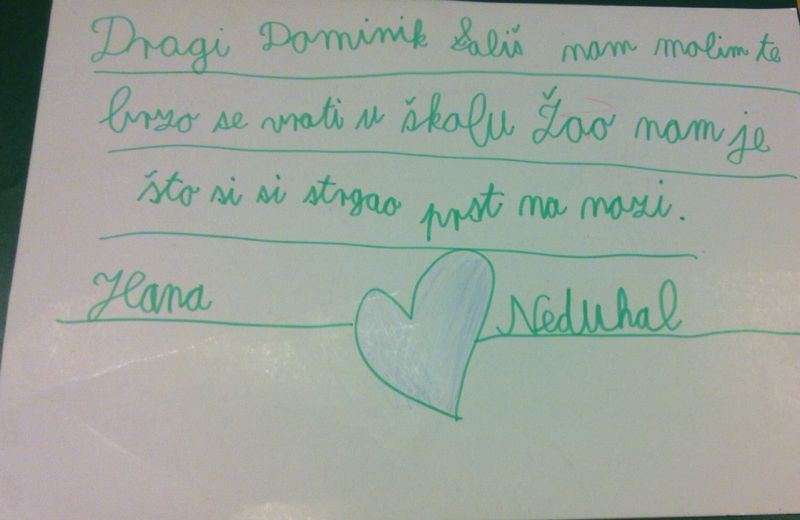 Dragi Dominik Žališ nam molim te
brzo se vrati u školu Žao nam je
što si si strgao prst na nozi.
Hana Neduhal